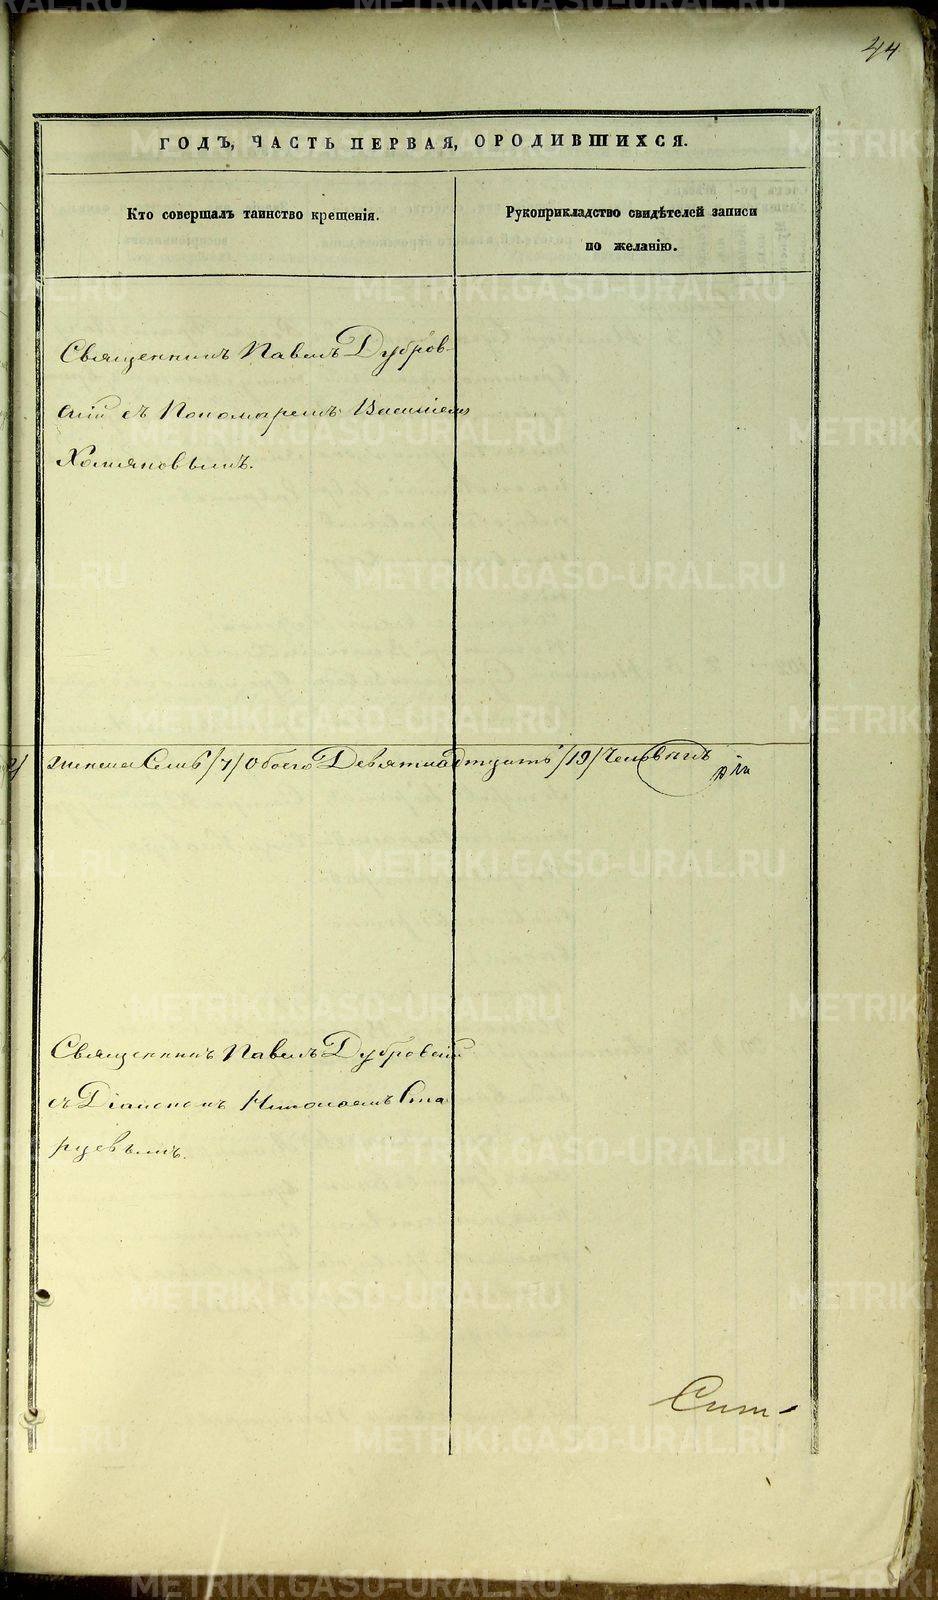 44
ГОДЪ, ЧАСТЬ ПЕРВАЯ, О РОДИВШИХСЯ.
Кто совершалъ таинство крещенія.
Рукоприкладство свидѣтелей записи
по желанію.
Священникъ Павелъ Дубров-
скій съ Пономаремъ Василіемъ
Хомяковымъ.
женска Семь /7/ Обоего Девятнадцать /19/ Человѣкъ
Священникъ Павелъ Дубровскій
съ Діакономъ Николаемъ Ста
рцевымъ.
METRIKI.GASO-URAL.RU